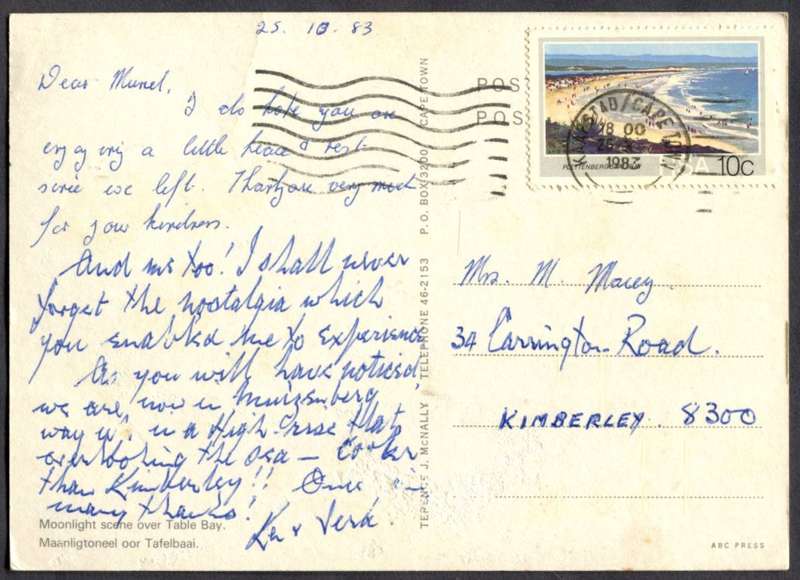 25. 10. 83
Dear Muriel,
I do hope you are
enjoying a little peace & rest
since we left. Thank you very much
for your kindness.
And me too! I shall never
forget the nostalgia which
you enabled me to experience
As you will have noticed,
we are now in Muizenberg
way in a High rise that
overlooking the sea — cooler
than Kimberley!! Once
many thanks!
Ken & Vera
Moonlight scene over Table Bay.
Maanligtoneel oor Tafelbaai.
TERENCE J. McNALLY TELEPHONE 46-2153 P. O. BOX 3200 CAPE TOWN
POS
POS
KAAPSTAD/CAPE TOWN
18 00
1983
PLETTENBERG
10c
Mrs. M. Macey
34 Carrington Road.
KIMBERLEY. 8300
ABC PRESS